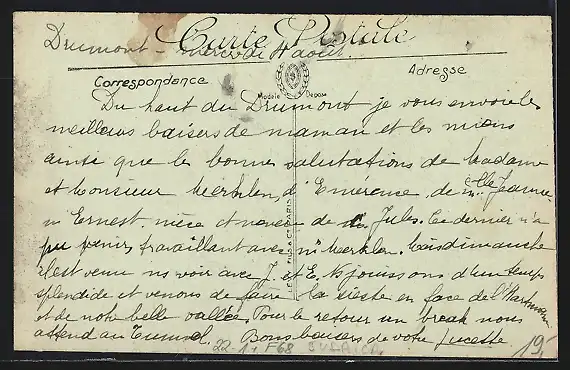 Carte Postale
Drumont - mercredi 4 août.
Correspondance
Adresse
Modèle Déposé
Du haut du Drumont je vous envoie les
meilleurs baisers de maman et les miens
ainsi que les bonnes salutations de Madame
et Monsieur Merklen, d'Emérence, de Mlle Jeanne
Ernest, nièce et neveu de Jules. Ce dernier n'a
pu venir, travaillant avec Mr Merklen. Mais dimanche
il est venu ns voir avec J. et E. Ns jouissons d'un temps
splendide et venons de faire la sieste en face de l'Hartmann
et de notre belle vallée. Pour le retour un break nous
attend au Tunnel. Bons baisers de votre Lucette.
22-1- F68
19.-